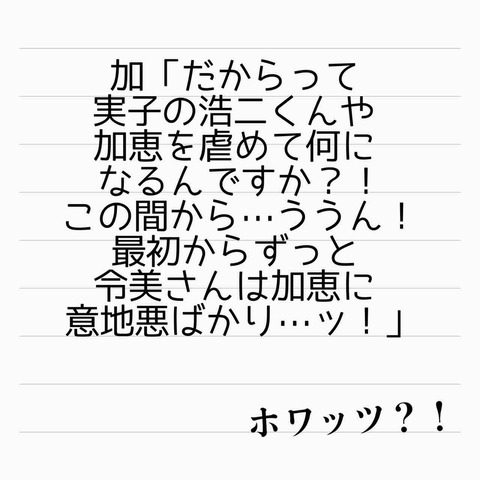 加「だからって
実子の浩二くんや
加恵を虐めて何に
なるんですか？！
この間から…ううん！
最初からずっと
令美さんは加恵に
意地悪ばかり…ッ！」
ホワッツ？！